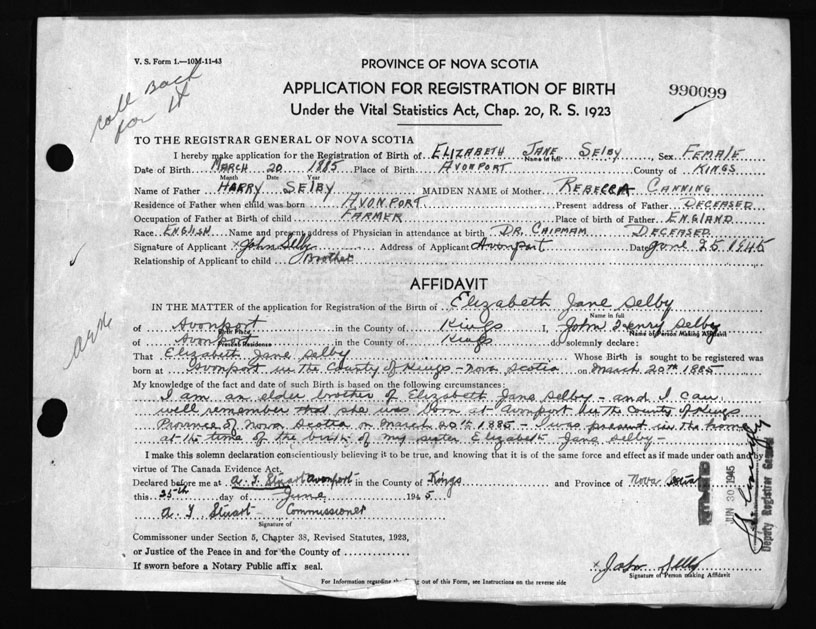 V. S. Form 1.—10M-11-43
call Back
for it
PROVINCE OF NOVA SCOTIA
APPLICATION FOR REGISTRATION OF BIRTH
990099
Under the Vital Statistics Act, Chap. 20, R. S. 1923
TO THE REGISTRAR GENERAL OF NOVA SCOTIA
I hereby make application for the Registration of Birth of ELIZABETH JANE SELBY, Sex FEMALE
Name in full
Date of Birth MARCH 20 1885 Place of Birth AVONPORT County of KINGS
Month Date Year
Name of Father HARRY SELBY MAIDEN NAME of Mother REBECCA CANNING
Residence of Father when child was born AVONPORT Present address of Father DECEASED
Occupation of Father at Birth of child FARMER Place of birth of Father ENGLAND
Race ENGLISH Name and present address of Physician in attendance at birth DR. CHIPMAM DECEASED
Signature of Applicant x John Selby Address of Applicant Avonport Date June 25 1945
Relationship of Applicant to child Brother
AFFIDAVIT
IN THE MATTER of the application for Registration of the Birth of Elizabeth Jane Selby
Name in full
of Avonport in the County of Kings I, John Henry Selby
Birth Place Name of Person Making Affidavit
of Avonport in the County of Kings do solemnly declare:
Present Residence
That Elizabeth Jane Selby Whose Birth is sought to be registered was
born at Avonport in the County of Kings - Nova Scotia on March 20th 1885
My knowledge of the fact and date of such Birth is based on the following circumstances:
I am an elder brother of Elizabeth Jane Selby - and I can
well remember that she was born at Avonport in the County of Kings
Province of Nova Scotia on March 20th 1885 - I was present in the home
at the time of the birth of my sister Elizabeth Jane Selby -
I make this solemn declaration conscientiously believing it to be true, and knowing that it is of the same force and effect as if made under oath and by
virtue of The Canada Evidence Act.
Declared before me at A. Y. Stuart Avonport in the County of Kings and Province of Nova Scotia
this 25th day of June 1945.
A Y Stuart - Commissioner
Signature of
Commissioner under Section 5, Chapter 38, Revised Statutes, 1923,
or Justice of the Peace in and for the County of
If sworn before a Notary Public affix seal.
x John Selby
Signature of Person making Affidavit
For Information regarding the filling out of this Form, see Instructions on the reverse side
JUN 30 1945
Deputy Registrar General